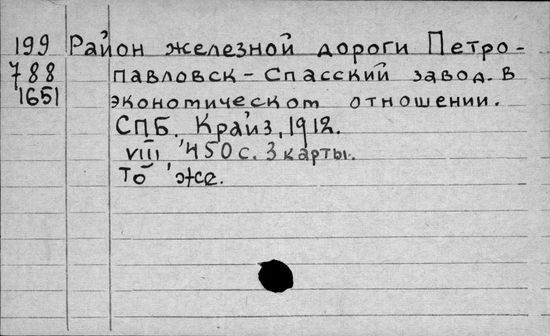 199 Район железной дороги Петро-
788 павловск-Спасский завод. в
1651 экономическом отношении.
СПБ. Крайз, 1912.
VIII 450 с. 3 карты.
То же.